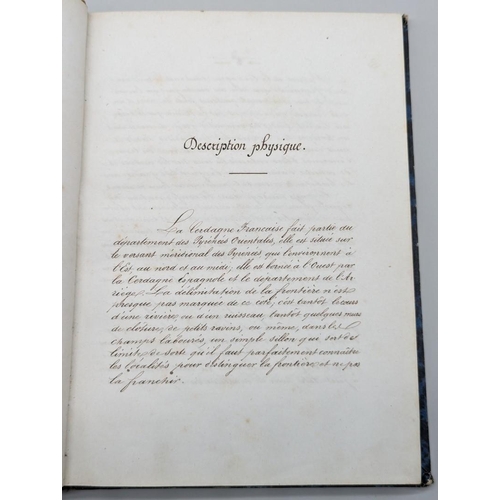 Description physique.
La Cerdagne Française fait partie du
département des Pyrénées Orientales, elle est située sur
le versant méridional des Pyrénées qui l'environnent à
l'Est au nord et au midi, elle est bornée à l'Ouest par
la Cerdagne Espagnole et le département de l'Ar
riège. La délimitation de la frontière n'est
presque pas marquée de ce côté, c'est tantôt le cours
d'une rivière ou d'un ruisseau tantôt quelques murs
de clôture, de petits ravins, ou même, dans les
champs labourés, un simple sillon qui sert de
limite, de sorte qu'il faut parfaitement connaître
les localités pour distinguer la frontière et ne pas
la franchir.